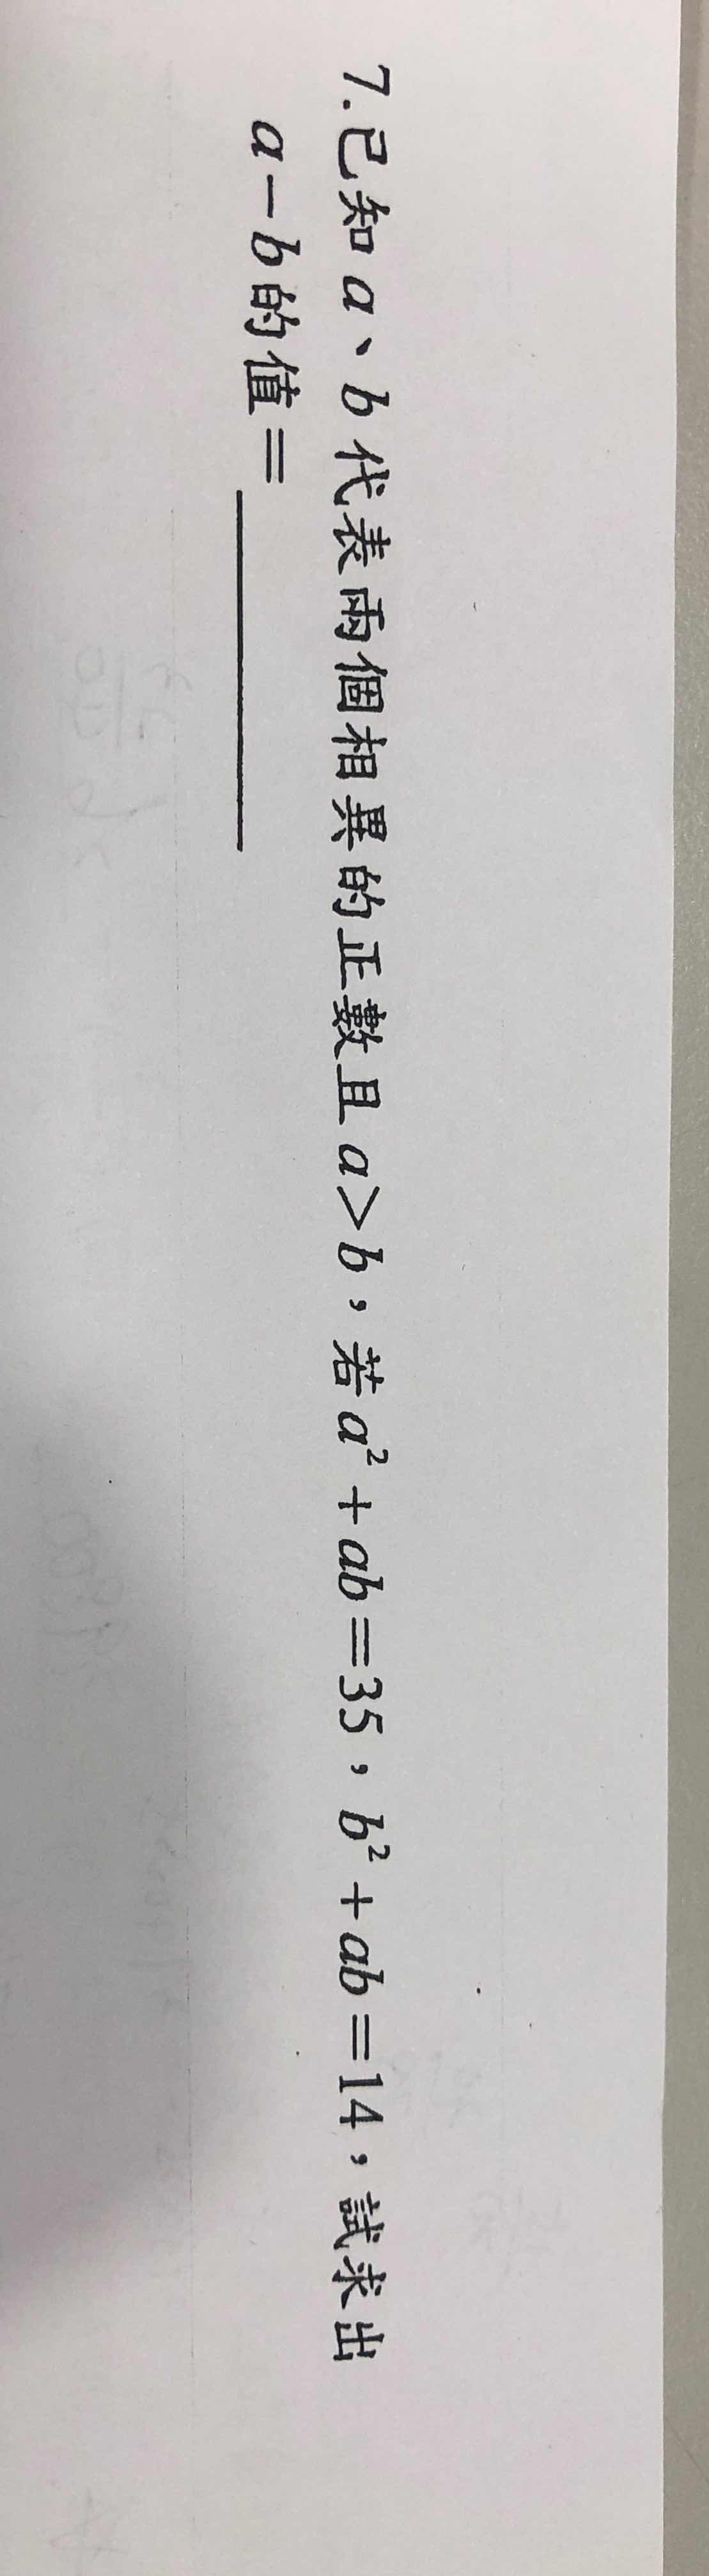 7.已知a、b代表兩個相異的正數且a>b，若a²+ab=35，b²+ab=14，試求出
a－b的值=________